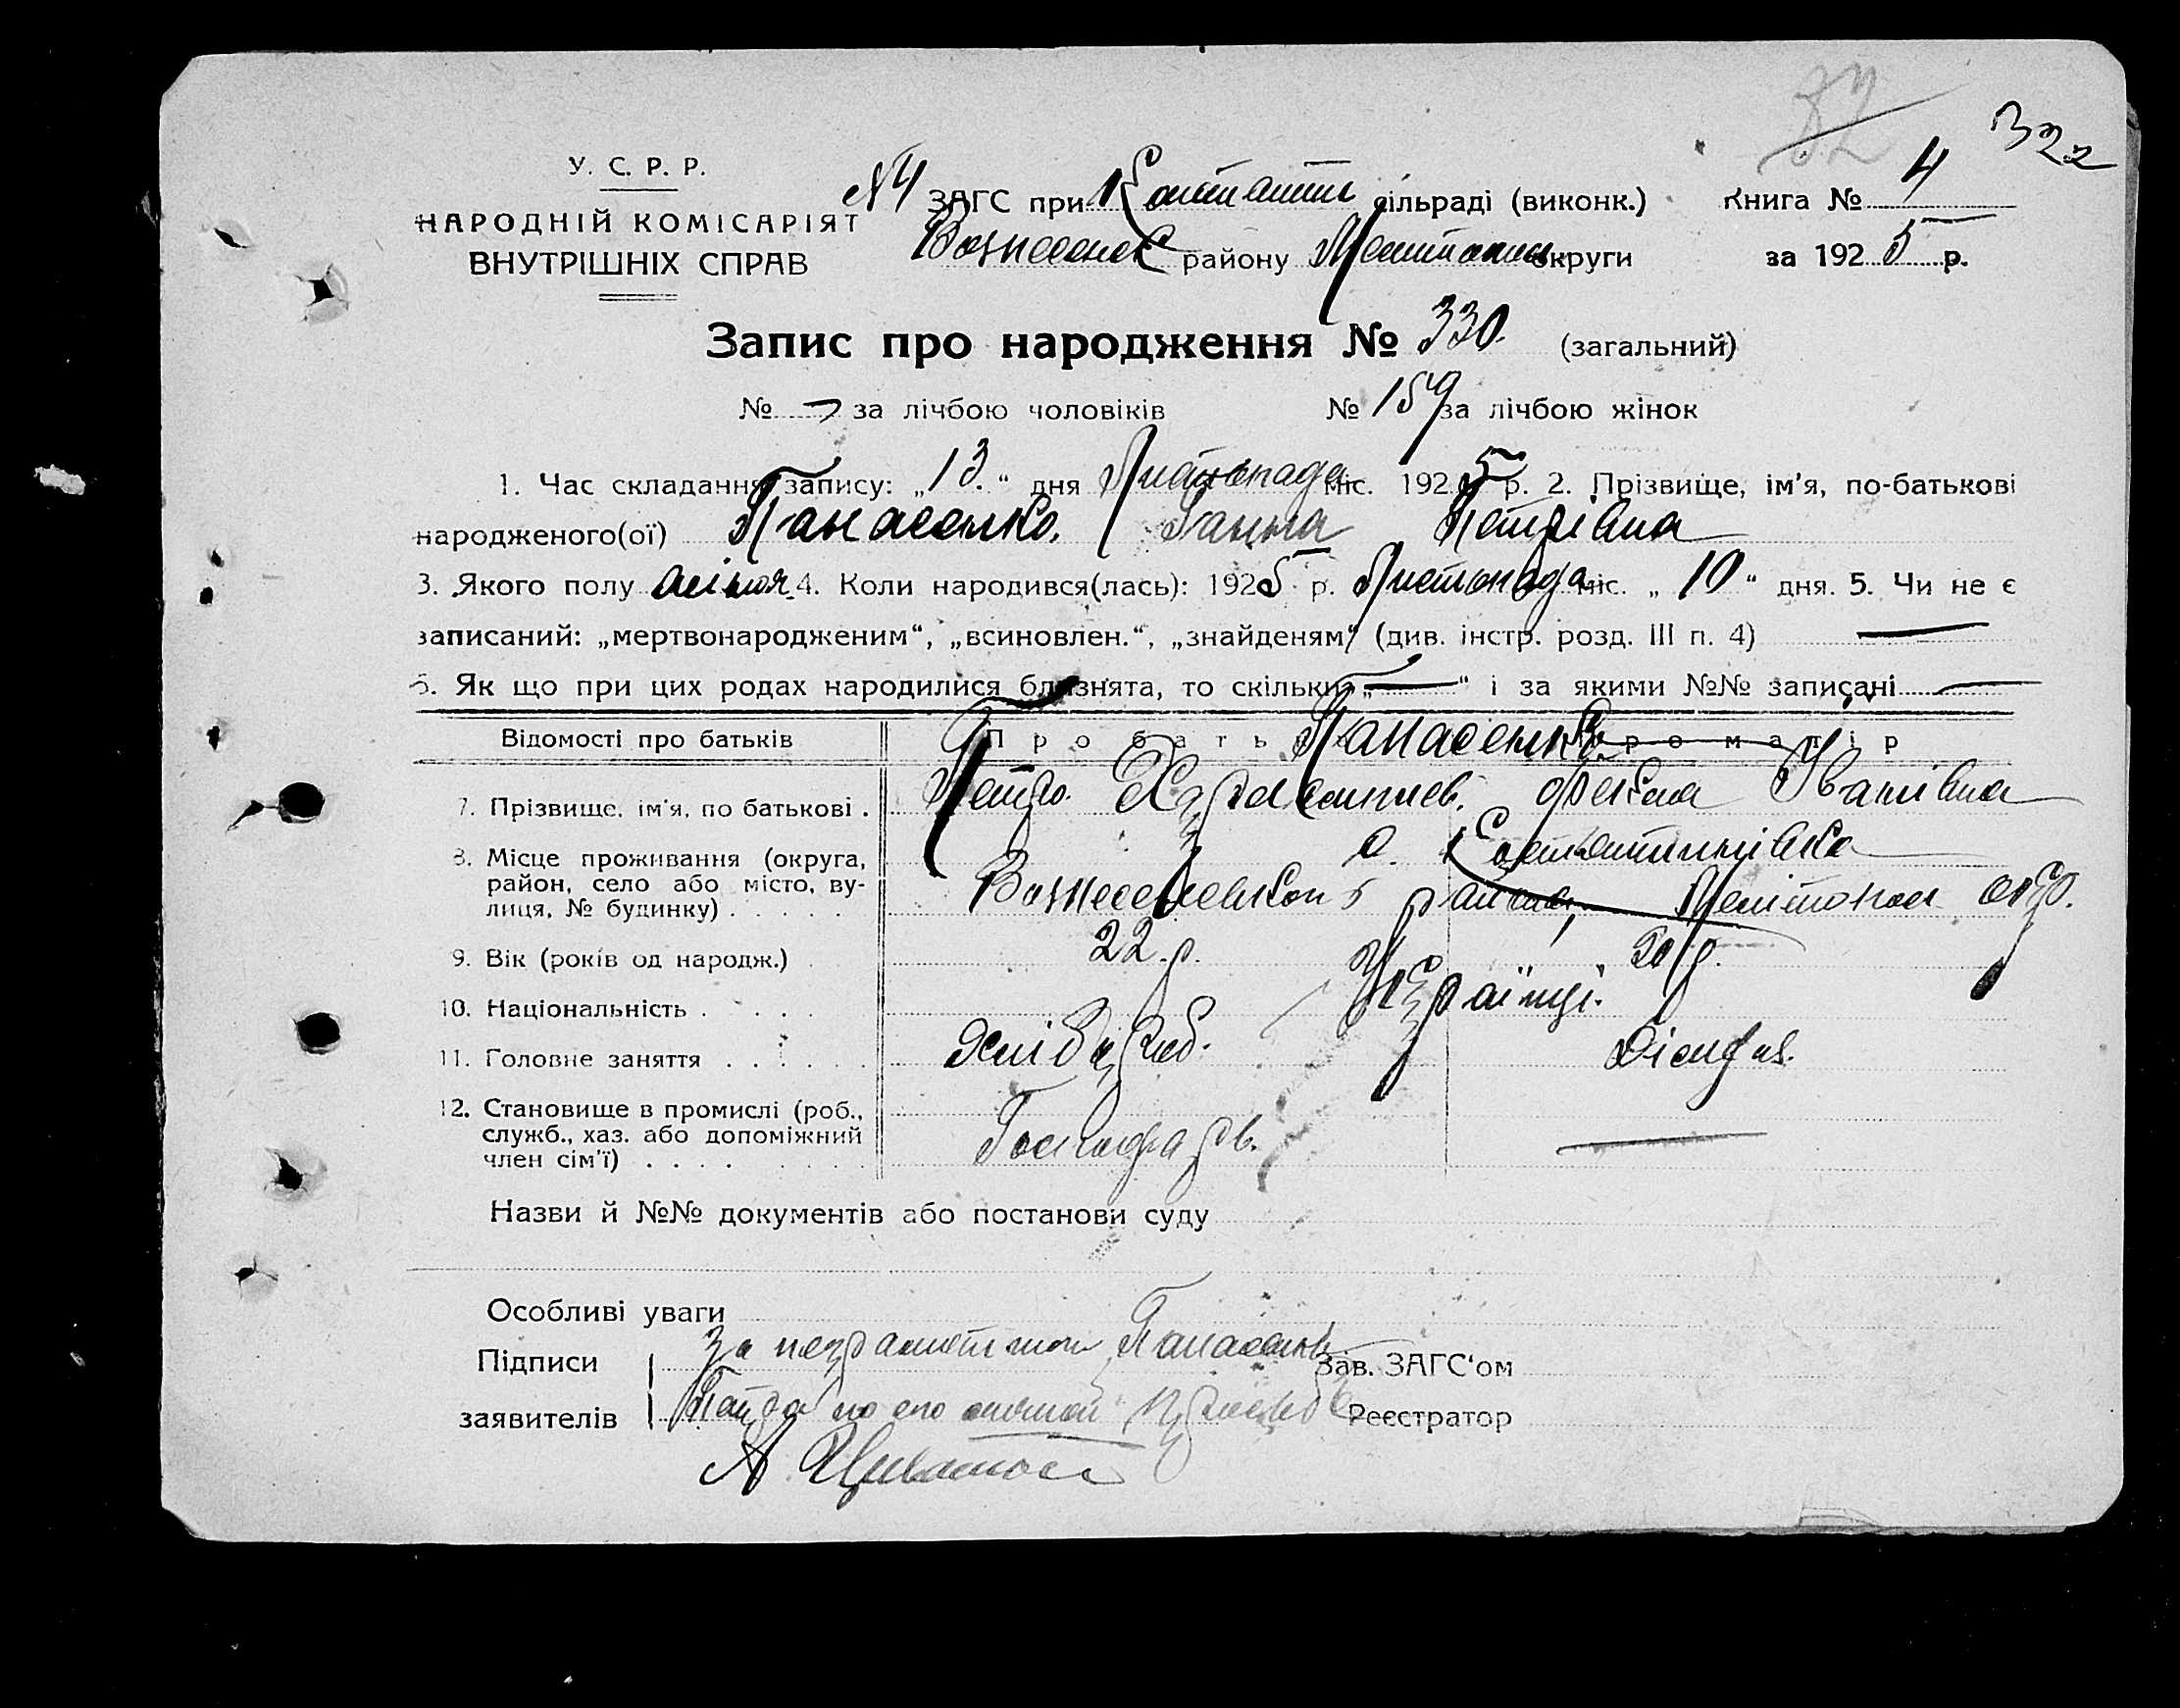 32
322
У. С. Р. Р.
НАРОДНІЙ КОМІСАРІЯТ
ВНУТРІШНІХ СПРАВ
№4 ЗАГС при Констант сільраді (виконк.) Книга № 4
Вознесенск району Мелитопил округи за 1925 р.
Запис про народження № 330. (загальний)
№ — за лічбою чоловіків № 159 за лічбою жінок
1. Час складання запису: „13.“ дня Листопада міс. 1925 р. 2. Прізвище, ім'я, по-батькові
народженого(ої) Панасенко. Ганна Петрівна
3. Якого полу жіноч. 4. Коли народився(лась): 1925 р. Листопада міс. „10“ дня. 5. Чи не є
записаний: „мертвонародженим“, „всиновлен.“, „знайденям“ (див. інстр. розд. III п. 4) —
6. Як що при цих родах народилися близнята, то скільки „—“ і за якими №№ записані —
Відомості про батьків Про батька Панасенко Про матір
7. Прізвище, ім'я, по батькові . Петро. Фекла Іванівна
8. Місце проживання (округа, район, село або місто, вулиця, № будинку) . . . . . с. Костантинівка
Вознесенского району, Мелітопол окр.
9. Вік (років од народж.) . 22 р. 20 р.
10. Національність . . . . . Українці.
11. Головне заняття . . . . . Хлібороб.
12. Становище в промислі (роб., служб., хаз. або допоміжний член сім'ї) . . . . Господар —
Назви й №№ документів або постанови суду
Особливі уваги
Підписи За неграмотного Панасенко Зав. ЗАГС‘ом
заявителів Петра по его личной Реєстратор
А.